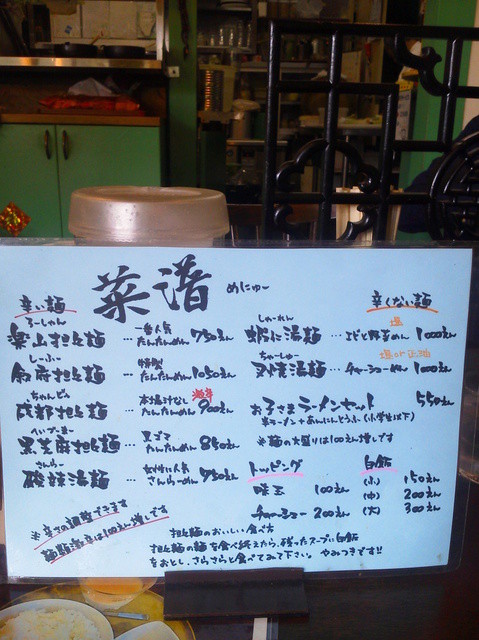 菜譜 めにゅー
辛い麺
らーしゃん
楽山担々麺 … 一番人気 たんたんめん 750えん
しーふー
師府担々麺 … 特製 たんたんめん 1050えん
ちゃんどぅ
成都担々麺 … 本場汁なし たんたんめん 激辛 900えん
へいずーまー
黒芝麻担々麺 … 黒ゴマ たんたんめん 850えん
さんらー
酸辣湯麺 … 女性に人気 さんらーめん 750えん
※辛さの調整できます
麺類激辛は100えん増しです
辛くない麺
しゃーれん
蝦仁湯麺 … 塩 エビと野菜めん 1000えん
ちゃーしゅー
叉焼湯麺 … 塩or正油 チャーシューめん 1000えん
お子さまラーメンセット 550えん
半ラーメン+あんにんどうふ(小学生以下)
※麺の大盛りは100えん増しです
トッピング
味玉 100えん
チャーシュー 200えん
白飯
(小) 150えん
(中) 200えん
(大) 300えん
担々麺のおいしい食べ方
担々麺の麺を食べ終えたら、残ったスープに白飯
をおとし、さらさらと食べてみて下さい。やみつきです!!